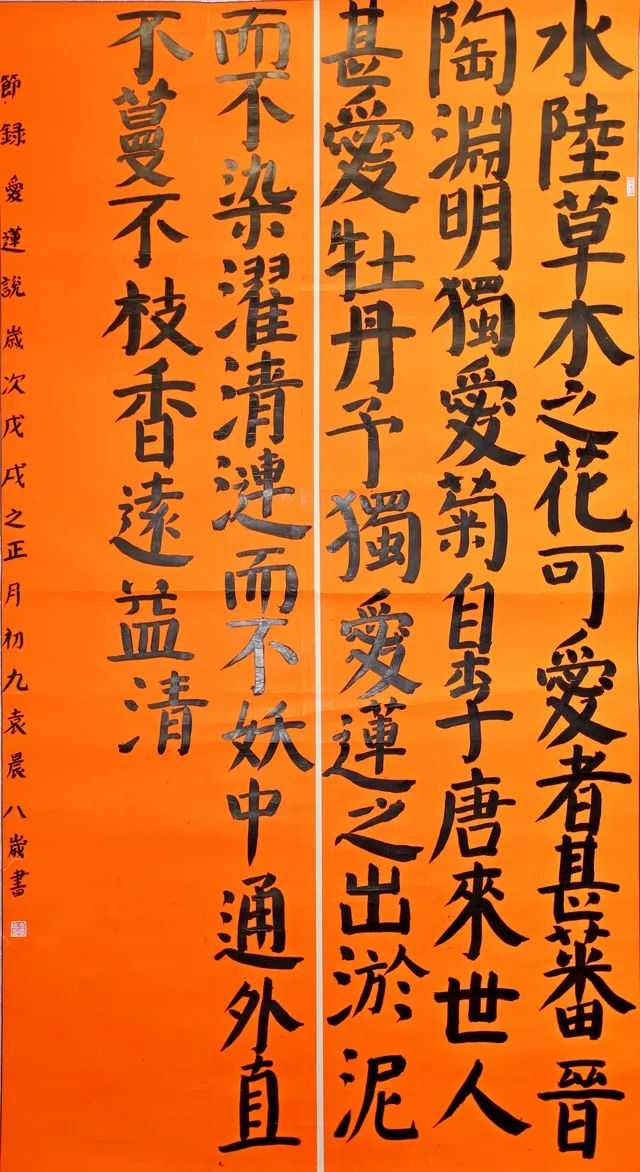 水陸草木之花可愛者甚蕃晉
陶淵明獨愛菊自李唐來世人
甚愛牡丹予獨愛蓮之出淤泥
而不染濯清漣而不妖中通外直
不蔓不枝香遠益清
節録愛蓮說歲次戊戌之正月初九袁晨八歲書